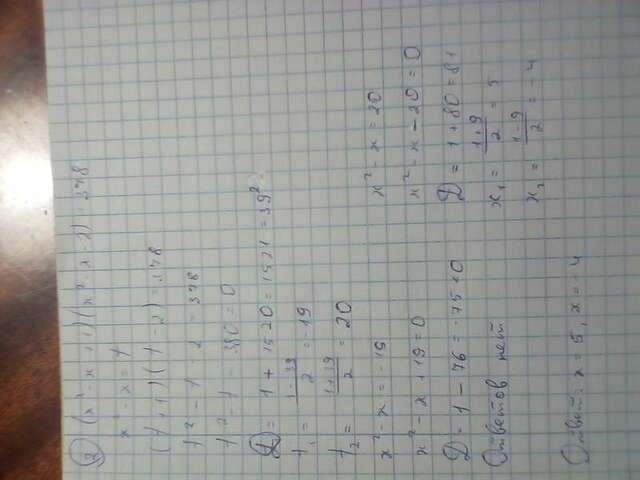 ② (x² - x + 1)(x² - x - 2) = 378
x² - x = t
(t + 1)(t - 2) = 378
t² - t - 2 = 378
t² - t - 380 = 0
D = 1 + 1520 = 1521 = 39²
t₁ = (1 - 39)/2 = -19
t₂ = (1 + 39)/2 = 20
x² - x = -19
x² - x + 19 = 0
D = 1 - 76 = -75 < 0
Ответов нет
x² - x = 20
x² - x - 20 = 0
D = 1 + 80 = 81
x₁ = (1 + 9)/2 = 5
x₂ = (1 - 9)/2 = -4
Ответ: x = 5, x = -4